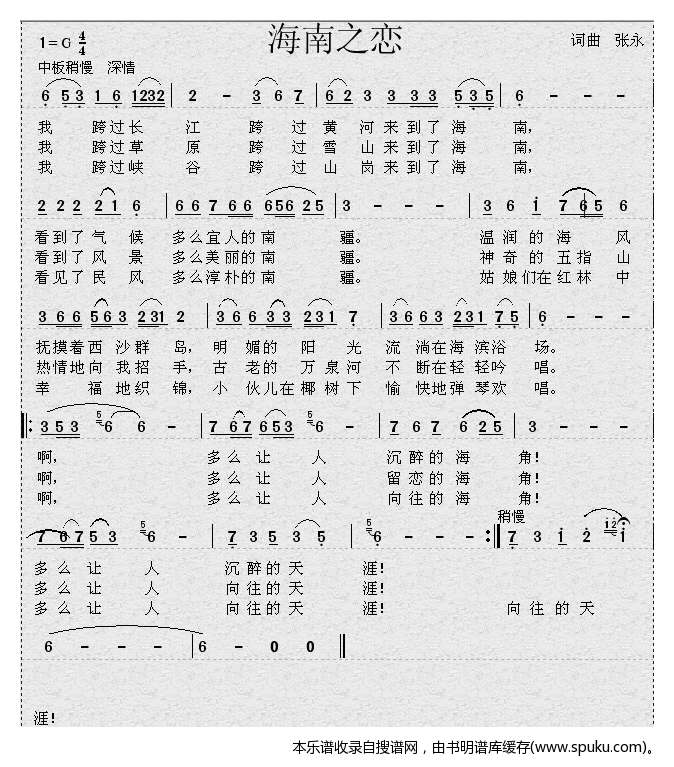 海南之恋
1=G 4/4
词曲 张永
中板稍慢 深情
6 5 3 1 6 1232 | 2 - 3 6 7 | 6 2 3 3 3 3 5 3 5 | 6 - -
我 跨过长 江 跨 过 黄 河来到了海 南，
我 跨过草 原 跨 过 雪 山来到了海 南，
我 跨过峡 谷 跨 过 山 岗来到了海 南，
2 2 2 2 1 6 | 6 6 7 6 6 6 5 6 2 5 | 3 - - | 3 6 i 7 6 5 6
看到了气 候 多么宜人的南 疆。 温润的海 风
看到了风 景 多么美丽的南 疆。 神奇的五指 山
看见了民 风 多么淳朴的南 疆。 姑娘们在红林 中
3 6 6 5 6 3 2 3 1 2 | 3 6 6 3 3 2 3 1 7 | 3 6 6 3 2 3 1 7 5 | 6 - - -
抚摸着西沙群 岛，明 媚的 阳 光 流 淌在海 滨浴 场。
热情地向我招 手，古 老的 万 泉河 不 断在轻 轻吟 唱。
幸 福地织 锦，小 伙儿在椰树下 愉 快地弹 琴欢 唱。
3 5 3 5 6 6 - | 7 6 7 6 5 3 5 6 - | 7 6 7 6 2 5 | 3 - - -
啊， 多么让 人 沉醉的海 角！
啊， 多么让 人 留恋的海 角！
啊， 多么让 人 向往的海 角！
稍慢
7 6 7 5 3 5 6 - | 7 3 5 3 5 | 5 6 - - - :| 7 3 i 2 i 2 i
多么让 人 沉醉的天 涯！
多么让 人 向往的天 涯！
多么让 人 向往的天 涯！ 向往的天
6 - - - | 6 - 0 0
涯！
本乐谱收录自搜谱网，由书明谱库缓存(www.spuku.com)。